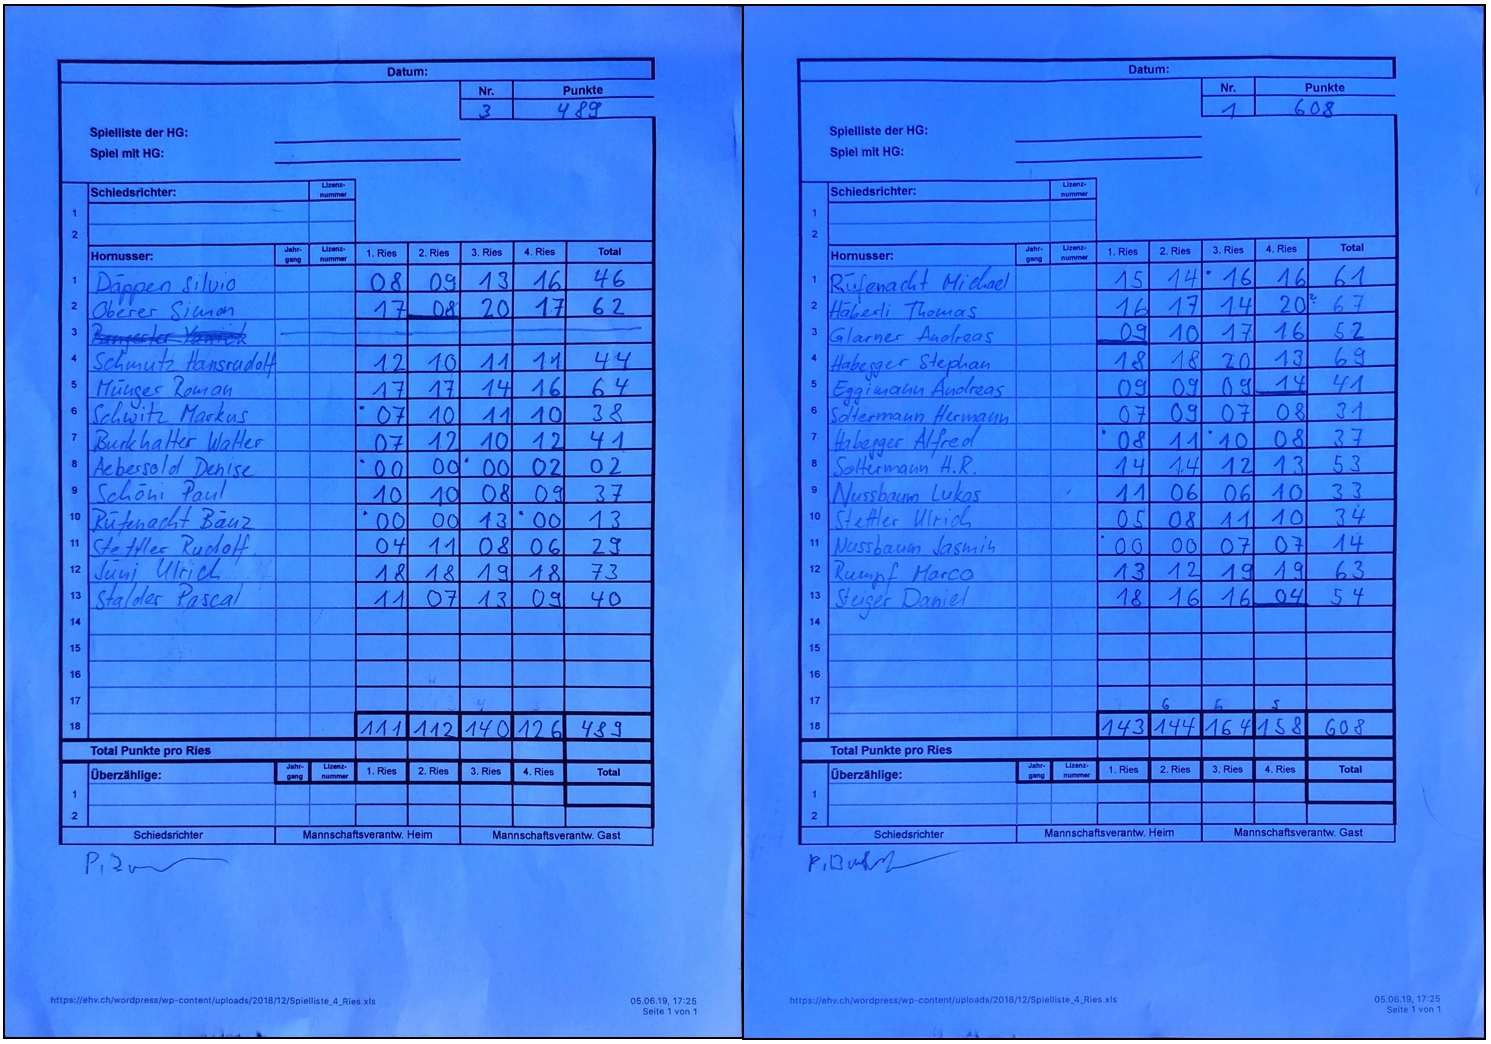 Datum:
Nr. Punkte
3 489
Spielliste der HG:
Spiel mit HG:
Schiedsrichter: Lizenz-
nummer
1
2
Hornusser: Jahr-
gang Lizenz-
nummer 1. Ries 2. Ries 3. Ries 4. Ries Total
1 Däppen Silvio 08 09 13 16 46
2 Oberer Simon 17 08 20 17 62
3
4 Schmutz Hansrudolf 12 10 11 11 44
5 Münger Roman 17 17 14 16 64
6 Schwitz Markus 07 10 11 10 38
7 Burkhalter Walter 07 12 10 12 41
8 Aebersold Denise 00 00 00 02 02
9 Schöni Paul 10 10 08 09 37
10 Rüfenacht Bänz 00 00 13 00 13
11 Stettler Rudolf 04 11 08 06 29
12 Jüni Ulrich 18 18 19 18 73
13 Stalder Pascal 11 07 13 09 40
14
15
16
17
18 111 112 140 126 489
Total Punkte pro Ries
Überzählige: Jahr-
gang Lizenz-
nummer 1. Ries 2. Ries 3. Ries 4. Ries Total
1
2
Schiedsrichter Mannschaftsverantw. Heim Mannschaftsverantw. Gast
https://ehv.ch/wordpress/wp-content/uploads/2018/12/Spielliste_4_Ries.xls 05.06.19, 17:25
Seite 1 von 1
Datum:
Nr. Punkte
1 608
Spielliste der HG:
Spiel mit HG:
Schiedsrichter: Lizenz-
nummer
1
2
Hornusser: Jahr-
gang Lizenz-
nummer 1. Ries 2. Ries 3. Ries 4. Ries Total
1 Rüfenacht Michael 15 14 16 16 61
2 Häberli Thomas 16 17 14 20 67
3 Glarner Andreas 09 10 17 16 52
4 Habegger Stephan 18 18 20 13 69
5 Eggimann Andreas 09 09 09 14 41
6 Soltermann Hermann 07 09 07 08 31
7 Habegger Alfred 08 11 10 08 37
8 Soltermann H.R. 14 14 12 13 53
9 Nussbaum Lukas 11 06 06 10 33
10 Stettler Ulrich 05 08 11 10 34
11 Nussbaum Jasmin 00 00 07 07 14
12 Rumpf Marco 13 12 19 19 63
13 Steiger Daniel 18 16 16 04 54
14
15
16
17 6 6 5
18 143 144 164 158 608
Total Punkte pro Ries
Überzählige: Jahr-
gang Lizenz-
nummer 1. Ries 2. Ries 3. Ries 4. Ries Total
1
2
Schiedsrichter Mannschaftsverantw. Heim Mannschaftsverantw. Gast
https://ehv.ch/wordpress/wp-content/uploads/2018/12/Spielliste_4_Ries.xls 05.06.19, 17:25
Seite 1 von 1